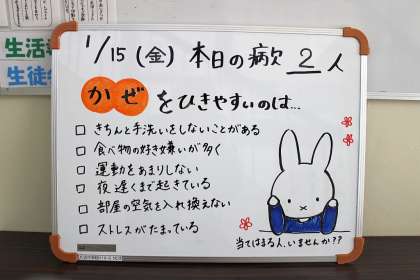 生活
生徒
1/15(金) 本日の病欠 2人
かぜをひきやすいのは…
□ きちんと手洗いをしないことがある
□ 食べ物の好き嫌いが多く
□ 運動をあまりしない
□ 夜遅くまで起きている
□ 部屋の空気を入れ換えない
□ ストレスがたまっている
当てはまる人、いませんか??